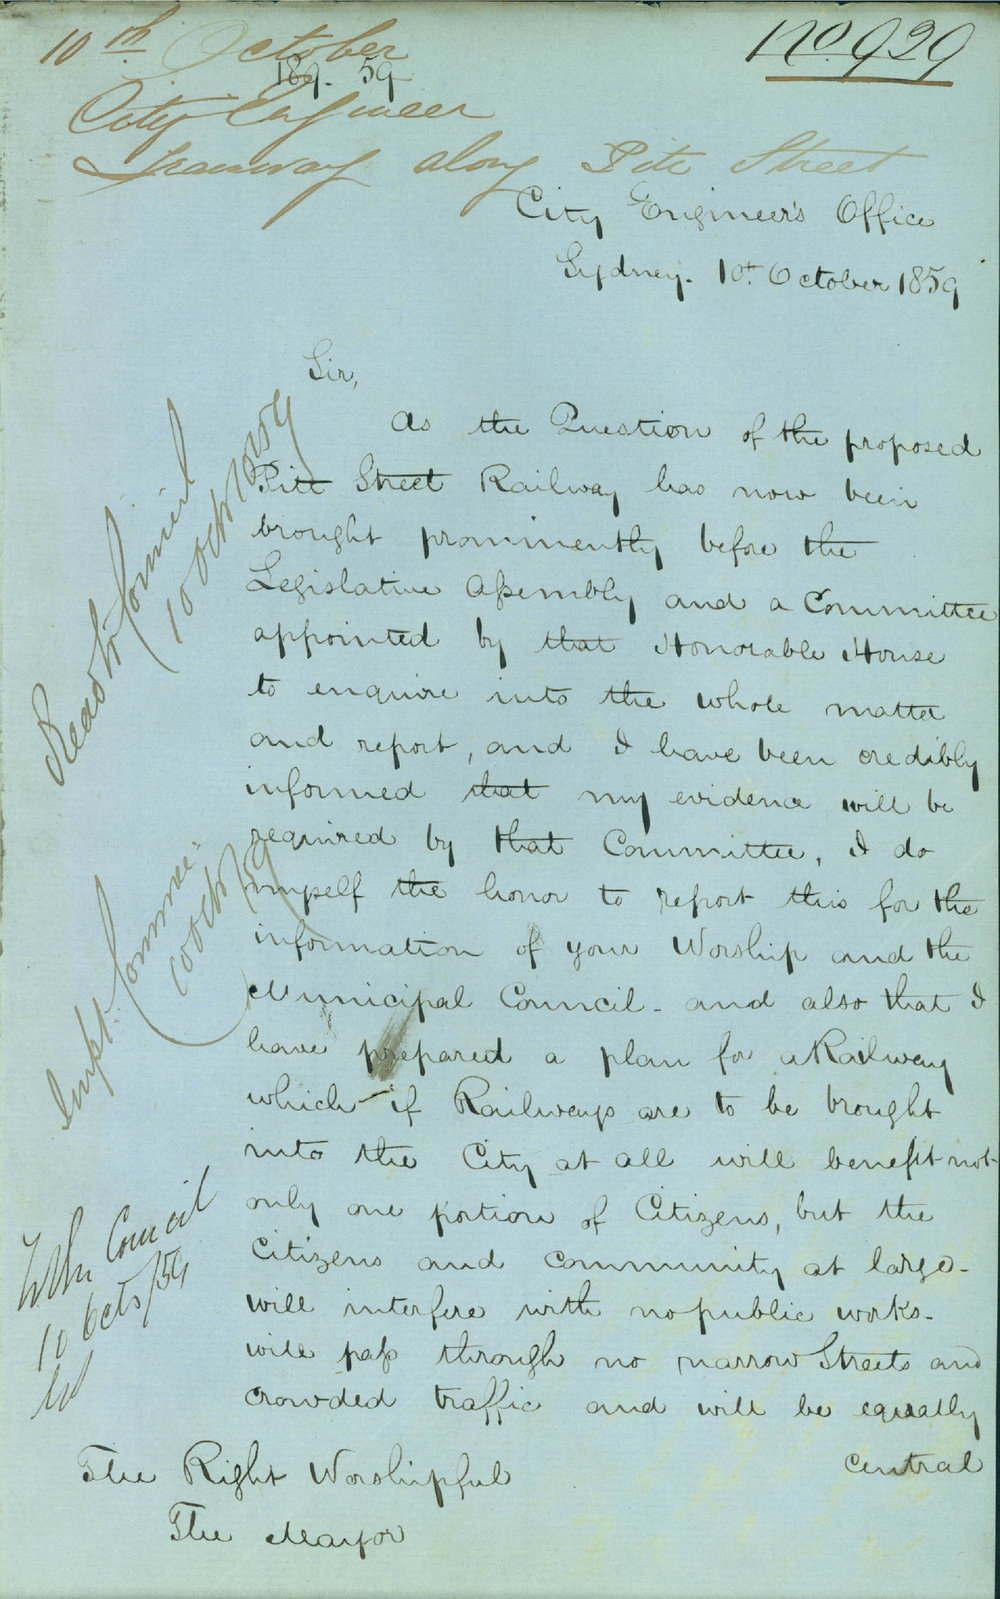 10th October
189. 59
No. 929
City Engineer
Tramway along Pitt Street
City Engineer's Office
Sydney. 10t. October 1859
Sir,
As the Question of the proposed
Pitt Street Railway has now been
brought prominently before the
Legislative Assembly and a Committee
appointed by that Honorable House
to enquire into the whole matter
and report, and I have been credibly
informed that my evidence will be
required by that Committee, I do
myself the honor to report this for the
information of your Worship and the
Municipal Council - and also that I
have prepared a plan for a Railway
which - if Railways are to be brought
into the City at all will benefit not
only one portion of Citizens, but the
Citizens and Community at large -
will interfere with no public works -
will pass through no narrow Streets and
crowded traffic and will be equally
central
The Right Worshipful
The Mayor
Read in Council
10 Oct 1859
Impt. Commee.
10 Oct/59
Council
10 Octr/59